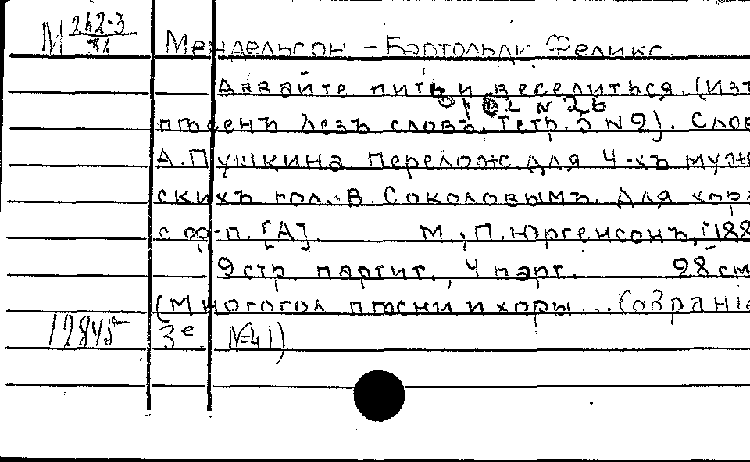 М 242-3
Мендельсон-Бартольди Феликс
Давайте пить и веселиться. (Изъ
пѣсенъ безъ словъ. Тетр. 3 № 2). Слов
А. Пушкина Перелож. для 4-хъ муж
скихъ гол. В. Соколовымъ. Для хора
с ф-п. [А]. М., П. Юргенсонъ, [188
9 стр. партит., 4 парт. 28 см
(Многогол. пѣсни и хоры... Собрані
12845 3е №41)